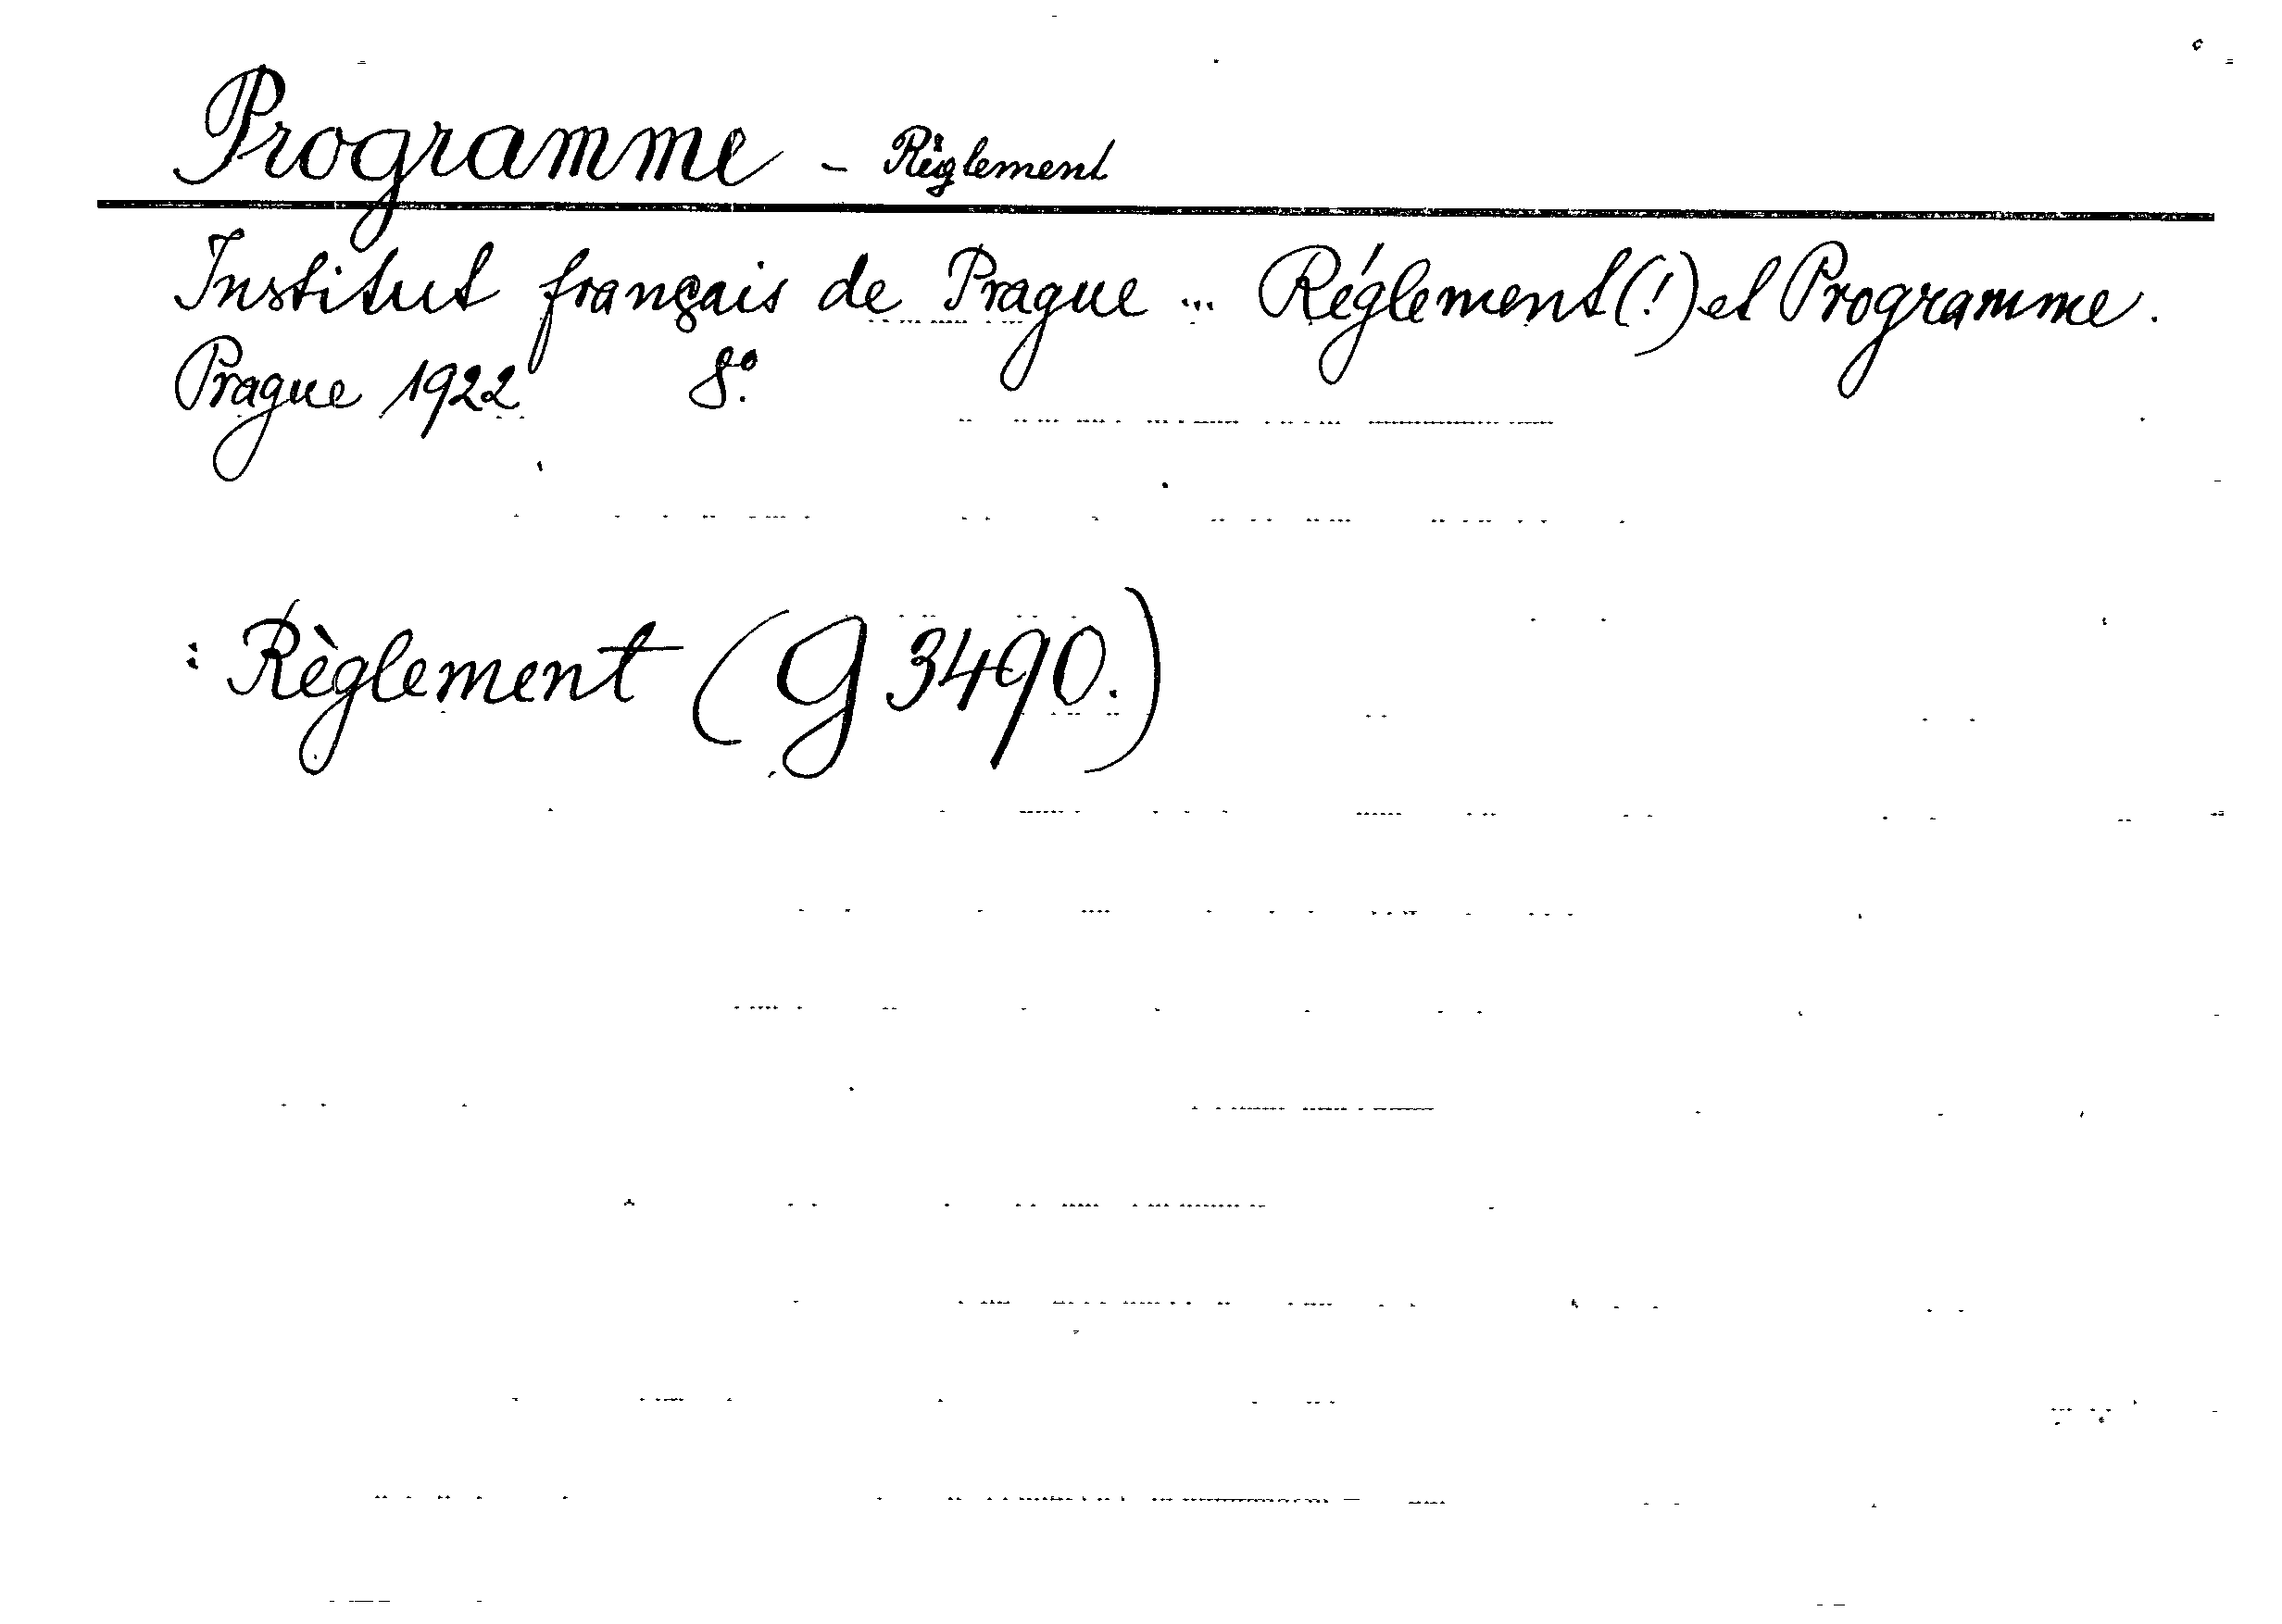 Programme - Règlement
Institut français de Prague ... Réglement(!) et Programme.
Prague 1922 8°.
: Règlement (G 3490.)